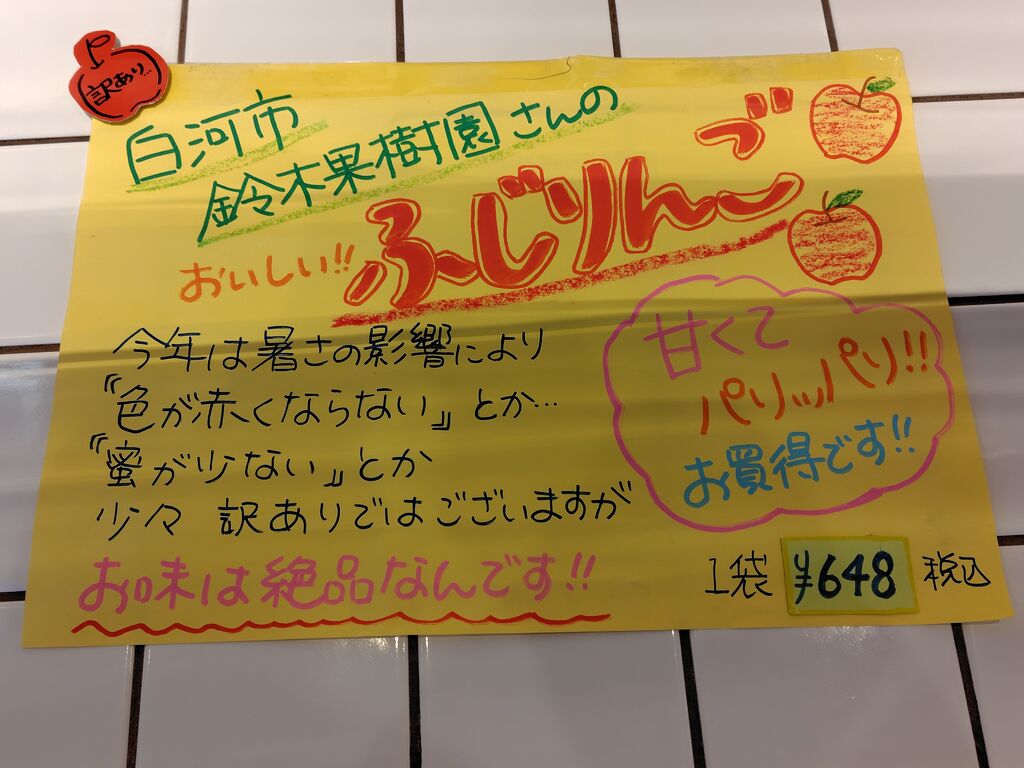 訳あり…
白河市
鈴木果樹園さんの
おいしい!! ふじりんご
今年は暑さの影響により
『色が赤くならない』とか…
『蜜が少ない』とか
少々 訳ありではございますが
お味は絶品なんです!!
甘くて
パリッパリ!!
お買得です!!
1袋 ¥648 税込